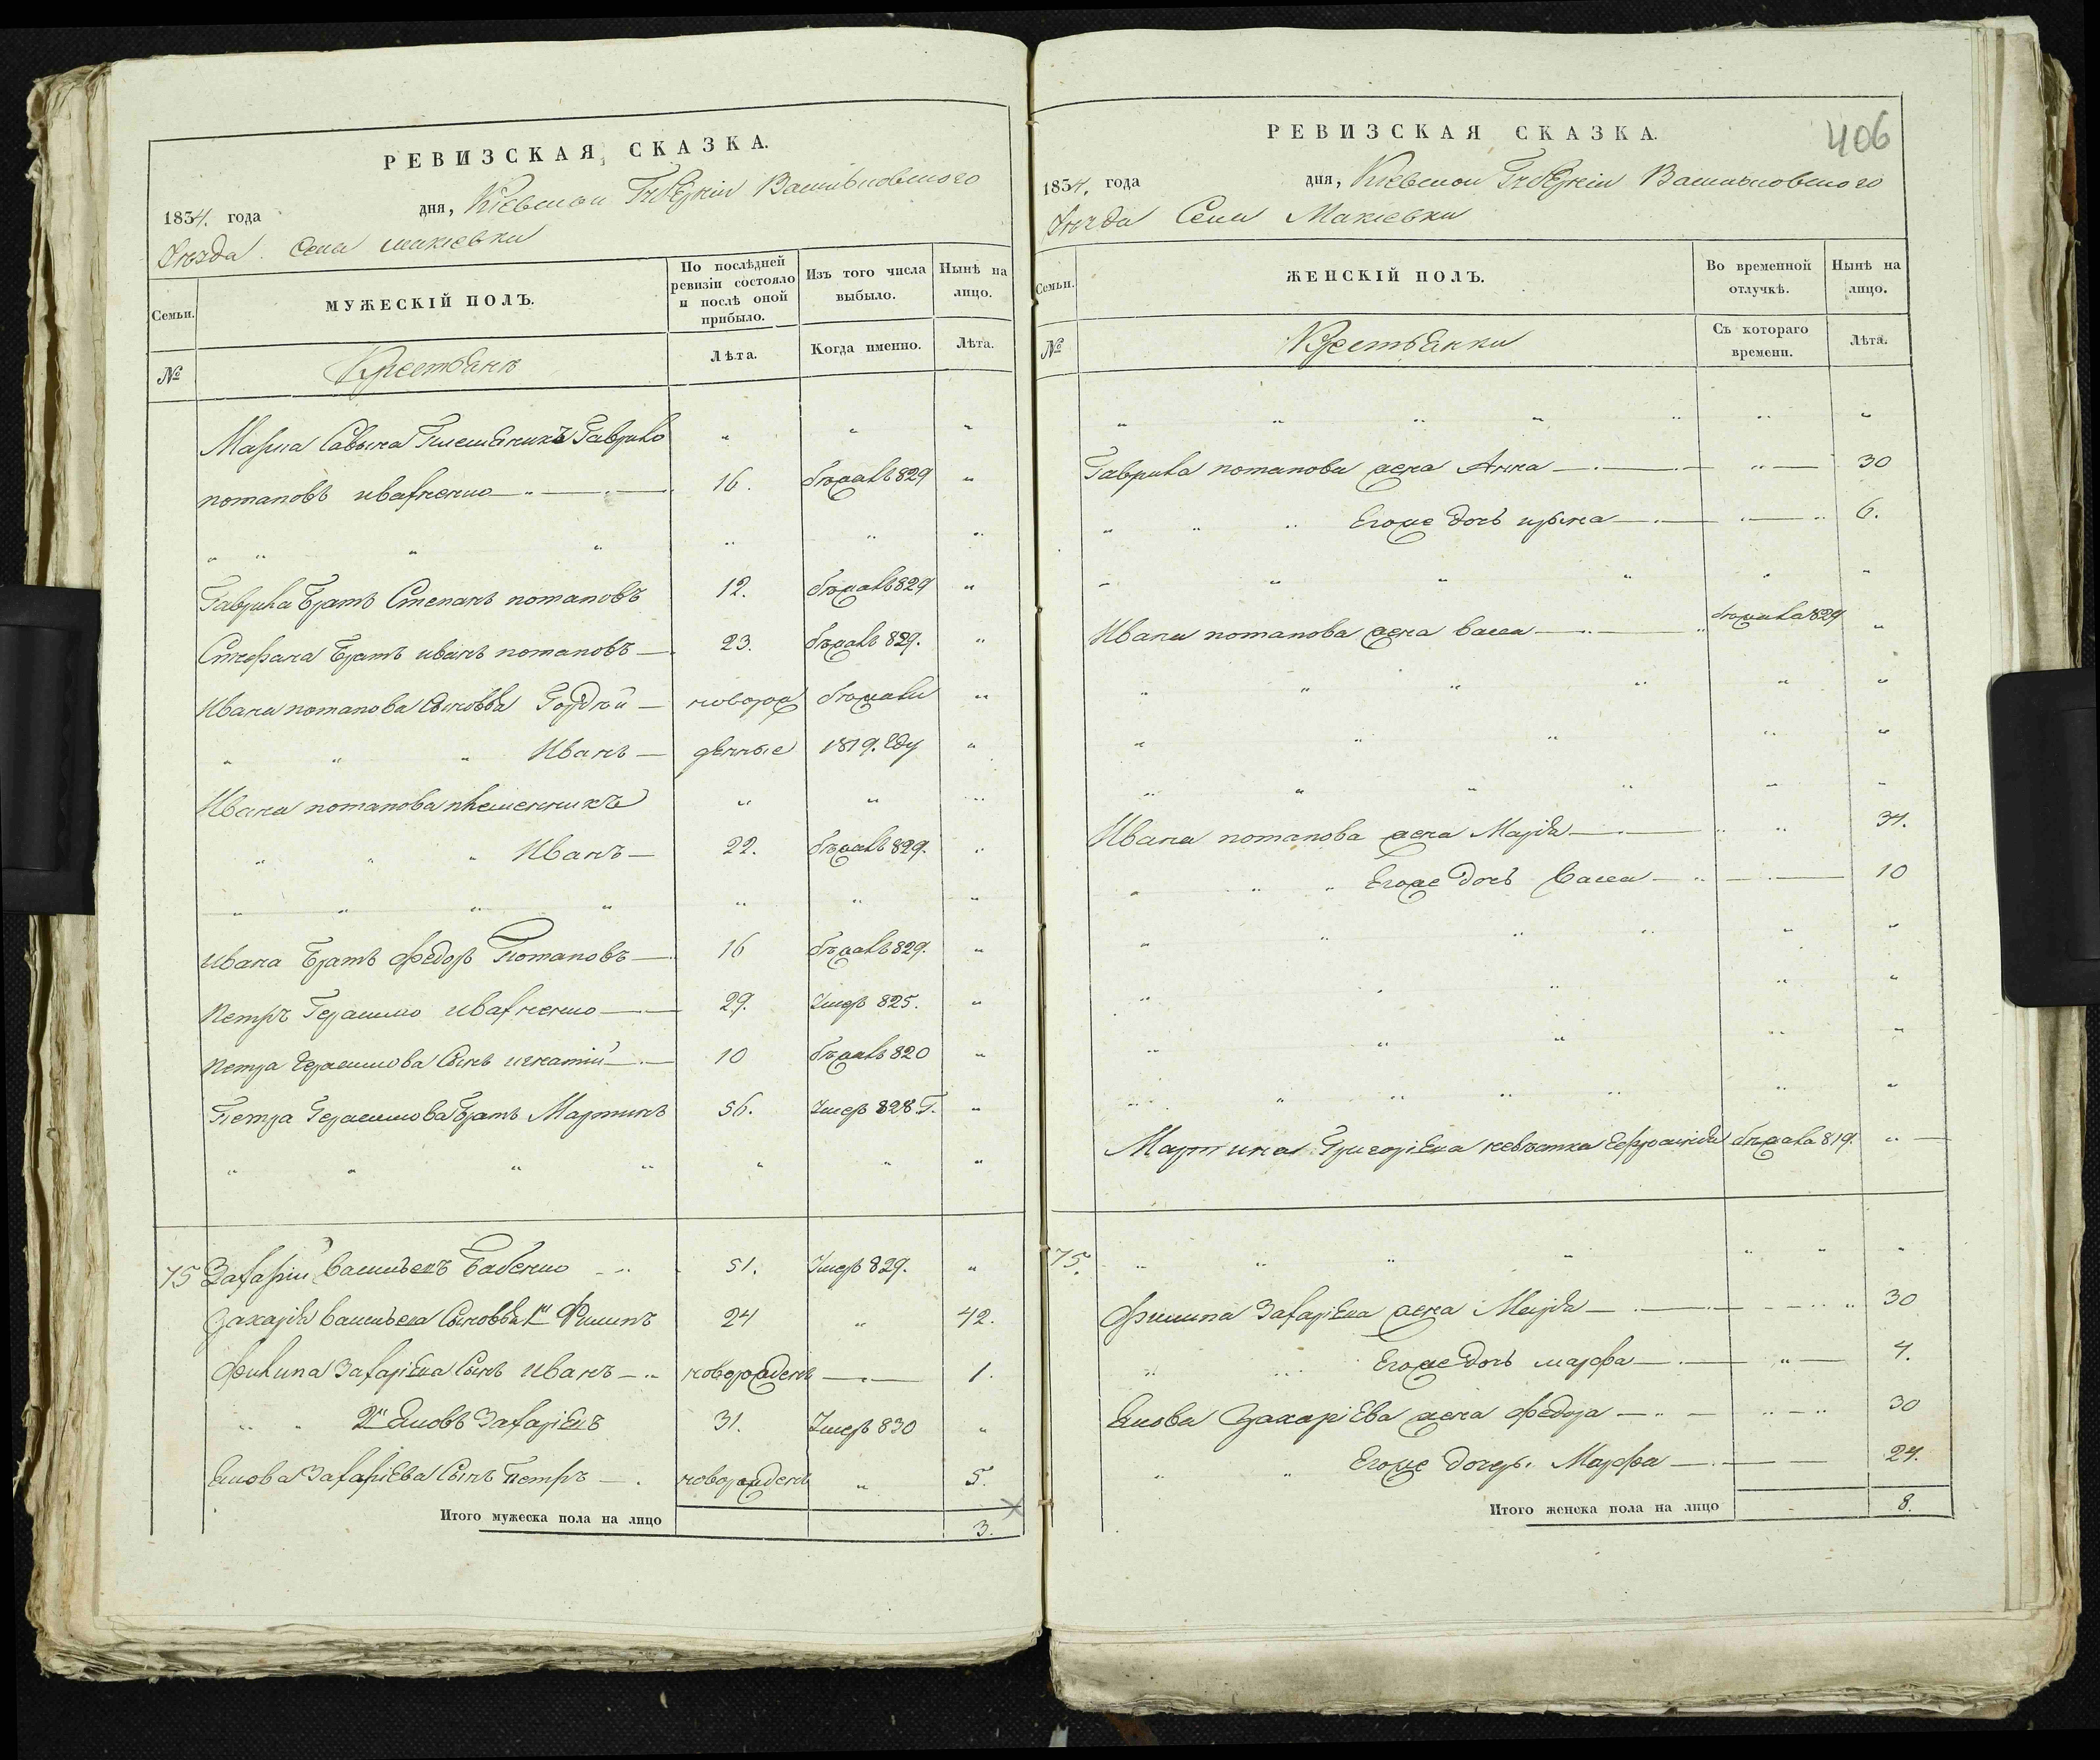 РЕВИЗСКАЯ СКАЗКА.
1834. года дня, Кіевской Губерніи Васильковскаго
Уезда Села Макіевки
Семьи.
МУЖЕСКІЙ ПОЛЪ.
По послѣдней ревизіи состояло и послѣ оной прибыло.
Изъ того числа выбыло.
Нынѣ на лицо.
№
Крестьянъ
Лѣта.
Когда именно.
Лѣта.
Савына Племянникъ Гаврило
потаповъ 16. бѣжалъ 829 "
Гаврила Братъ Степанъ потаповъ 12. бѣжалъ 829 "
Стефана Братъ иванъ потаповъ 23. бѣжалъ 829. "
Ивана потапова Сыновья Гордѣй новорож бѣжали "
Иванъ денные 1819. году "
Ивана потапова племенникъ " " "
Иванъ 22. бѣжалъ 829. "
ивана Братъ Федоръ Потаповъ 16 бѣжалъ 829. "
Петръ Герасимо 29. Умеръ 825. "
Петра Герасимова Сынъ игнатій 10 бѣжалъ 820 "
Петра Герасимова Братъ Мартинъ 56. Умеръ 828. Г. "
75 Захарій Васильевъ Бабенко 51. Умеръ 829. "
Захарія Васильева Сыновья 1й Филипъ 24 " 42.
Филипа Захаріева Сынъ Иванъ новорожденъ 1.
2й Яковъ Захаріевъ 31. Умеръ 830 "
Якова Захаріева Сынъ Петръ новорожденъ " 5.
Итого мужеска пола на лицо 3.
406
РЕВИЗСКАЯ СКАЗКА.
1834. года дня, Кіевской Губерніи Васильковскаго
Уезда Села Макіевки
Семьи.
ЖЕНСКІЙ ПОЛЪ.
Во временной отлучкѣ.
Нынѣ на лицо.
№
Крестьянки
Съ котораго времени.
Лѣта.
Гаврила потапова жена Анна " 30
Егоже дочь ирына 6.
Ивана потапова жена васса бѣжала 829 "
Ивана потапова жена Марія 34.
Егоже дочь Васса 10
Мартина Григоріева невѣстка Ефросинія бѣжала 819. "
75.
Филипа Захаріева жена Марія 30
Егоже дочь марфа " 4.
Якова Захаріева жена Федора 30
Егоже дочерь Марфа 24.
Итого женска пола на лицо 8.